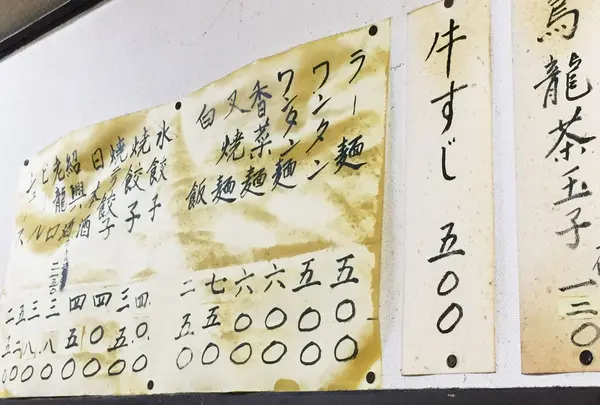 烏龍茶玉子 一三〇
牛すじ 五〇〇
ラー麺 五〇〇
ワンタン 五〇〇
ワンタン麺 六〇〇
香菜麺 六〇〇
叉焼麺 七五〇
白飯 二五〇
水餃子 四〇〇
焼餃子 三五〇
餃子 四〇〇
日本酒 四五〇
紹興酒 三八〇
老龍口 三八〇
ビール 五二〇
ジュース 二五〇